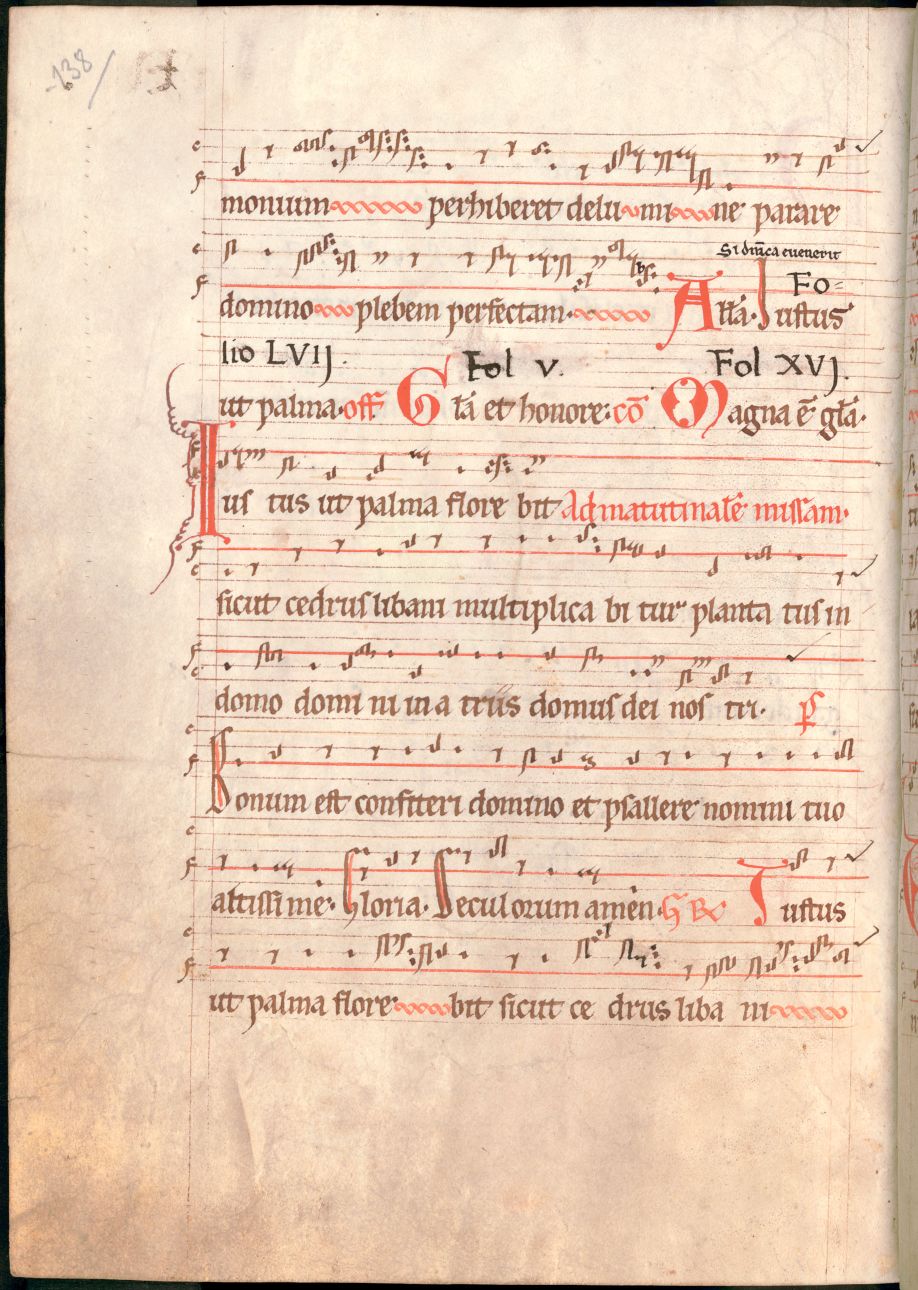 138
monium perhiberet de lumi ne parare
Si dnica euenerit
domino plebem perfectam. Alla. Iustus Fo=
lio LVIJ. Fol v. Fol XVJ.
ut palma. off Gla et honore. co Magna e gla.
Ius tus ut palma flore bit Ad matutinale missam.
sicut cedrus libani multiplica bi tur planta tus in
domo domi ni in a triis domus dei nos tri. ps
Bonum est confiteri domino et psallere nomini tuo
altissime. Gloria. Seculorum amen. Iustus
ut palma flore bit sicut ce drus liba ni